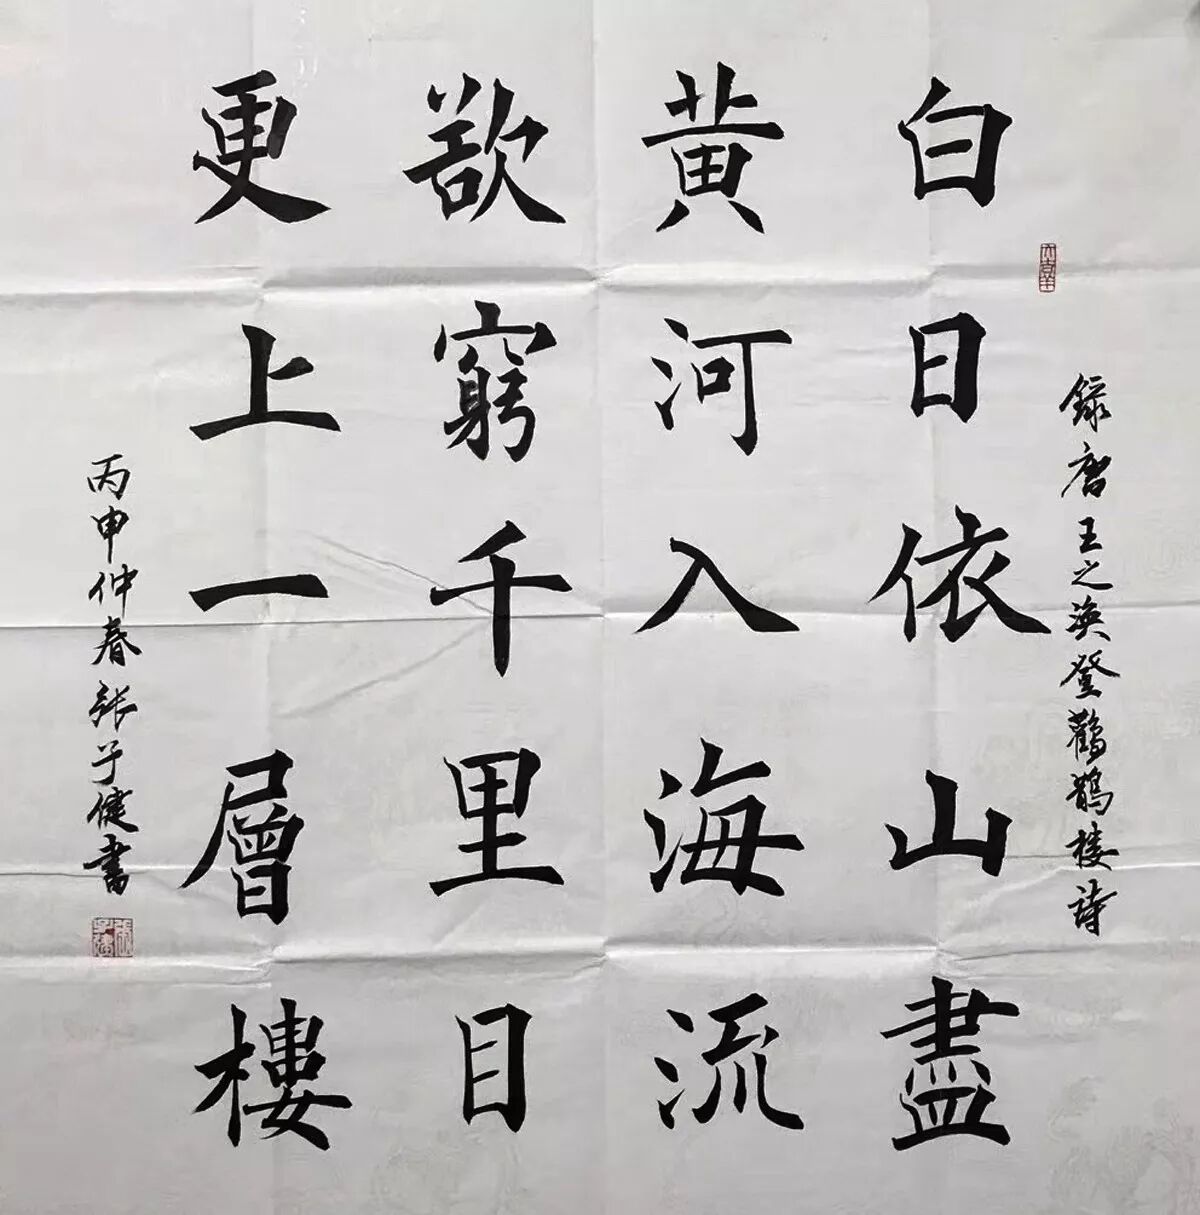 錄唐王之渙登鸛鵲樓詩
白日依山盡
黃河入海流
欲窮千里目
更上一層樓
丙申仲春张子健書